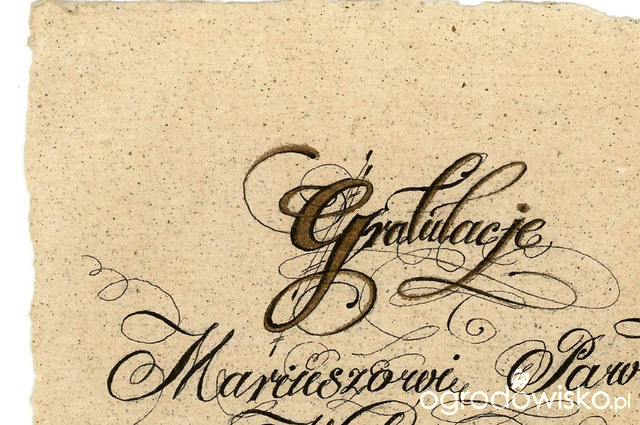 Gratulacje
Mariuszowi Paw
ogrodowisko.pl